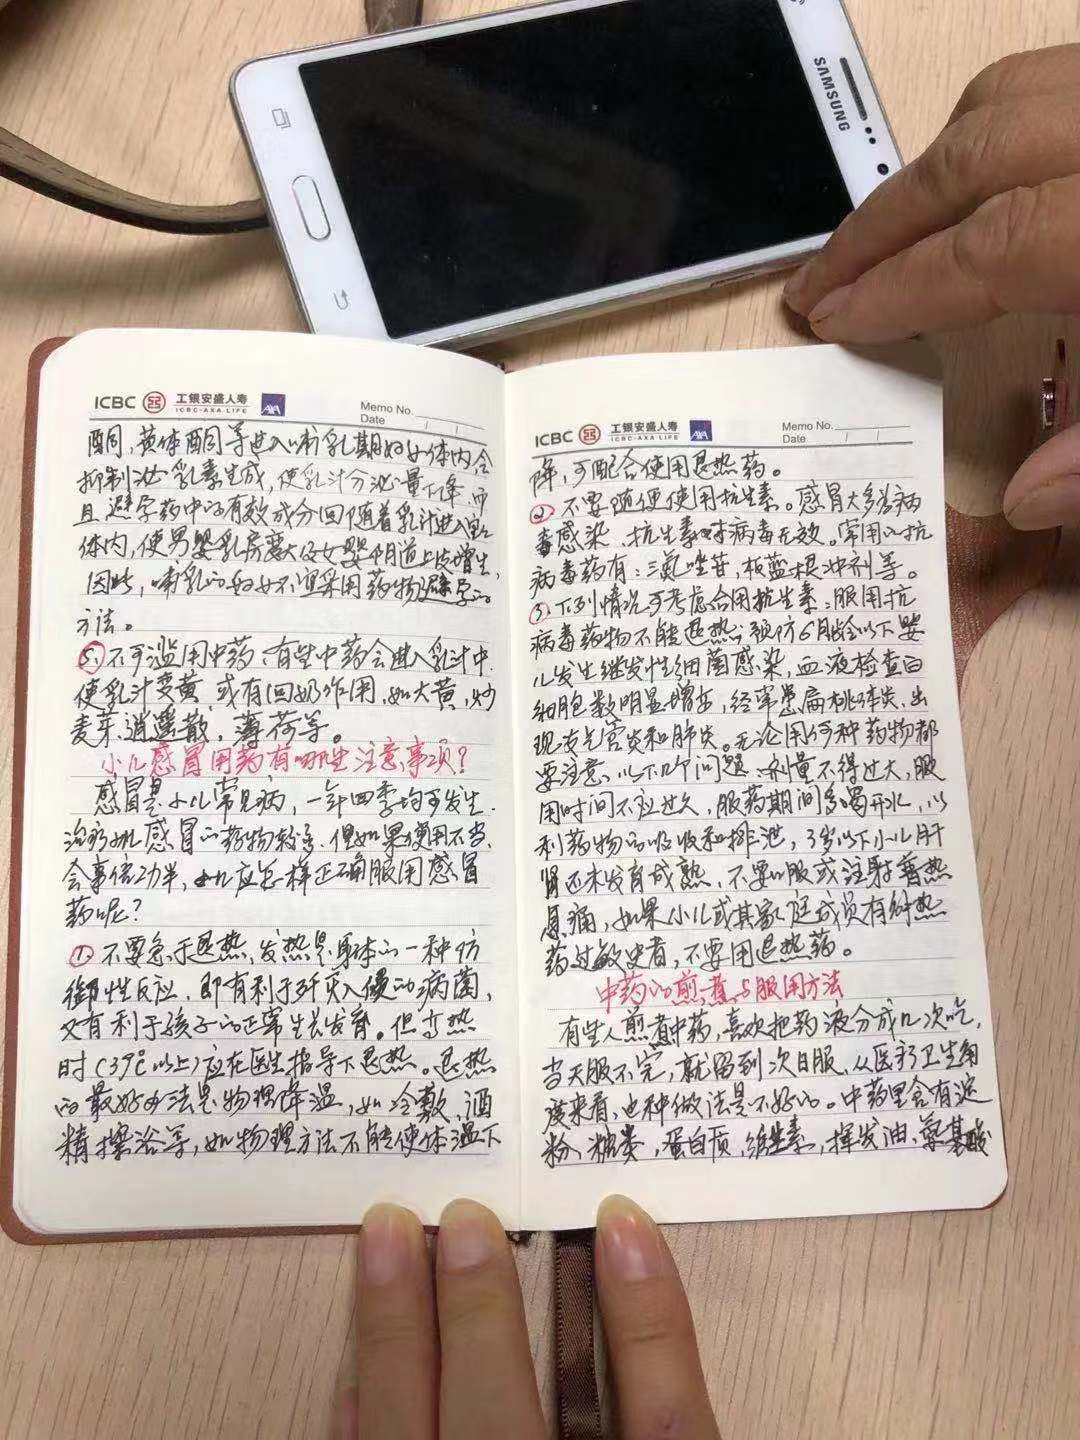 SAMSUNG
ICBC 工银安盛人寿 ICBC-AXA LIFE AXA Memo No. Date / /
酮,黄体酮等进入哺乳期妇女体内会
抑制泌乳素生成,使乳汁分泌量下降,而
且避孕药中的有效成分回随着乳汁进入婴儿
体内,使男婴乳房变大及女婴阴道上皮增生,
因此,哺乳的妇女不宜采用药物避孕的
方法。
⑤.不可滥用中药、有些中药会进入乳汁中,
使乳汁变黄,或有回奶作用,如大黄,炒
麦芽,逍遥散,薄荷等。
小儿感冒用药有哪些注意事项?
感冒是小儿常见病,一年四季均可发生.
治疗感冒的药物较多,但如果使用不当,
会事倍功半,如何应怎样正确服用感冒
药呢?
①.不要急于退热,发热是身体的一种防
御性反应,即有利于歼灭入侵的病菌,
又有利于孩子的正常生长发育。但高热
时(39℃以上)应在医生指导下退热。退热
的最好办法是物理降温,如冷敷,酒
精擦浴等,如物理方法不能使体温下
ICBC 工银安盛人寿 ICBC-AXA LIFE AXA Memo No. Date / /
降,可配合使用退热药。
②.不要随便使用抗生素。感冒大多为病
毒感染,抗生素对病毒无效。常用的抗
病毒药有:三氮唑苷,板蓝根冲剂等。
③.下列情况可考虑合用抗生素:服用抗
病毒药物不能退热;预防6月龄以下婴
儿发生继发性细菌感染,血液检查白
细胞数明显增高,经常患扁桃体炎,出
现支气管炎和肺炎。无论用何种药物都
要注意以下几个问题,剂量不得过大,服
用时间不应过久,服药期间多喝开水,以
利药物的吸收和排泄,3岁以下小儿肝
肾还未发育成熟,不要口服或注射普热
息痛,如果小儿或其家庭成员有解热
药过敏史者,不要用退热药。
中药的煎煮与服用方法
有些人煎煮中药,喜欢把药液分成几次吃,
当天服不完,就留到次日服,从医疗卫生角
度来看,也种做法是不好的。中药里含有淀
粉,糖类,蛋白质,维生素,挥发油,氨基酸